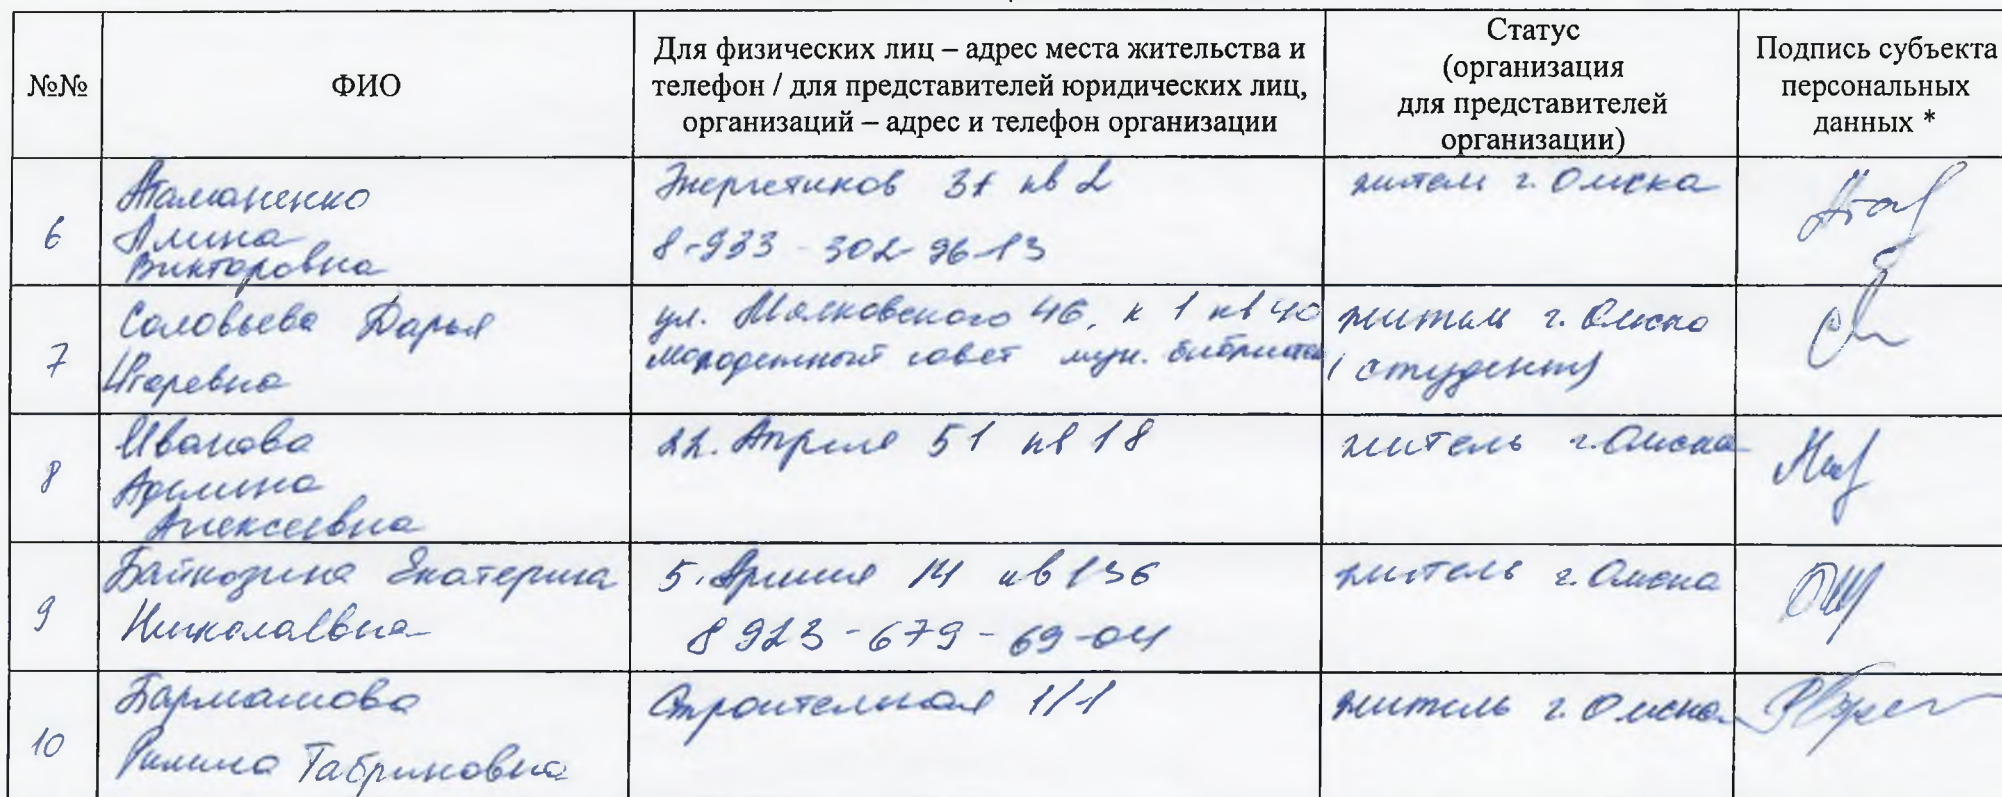 №№
ФИО
Для физических лиц – адрес места жительства и
телефон / для представителей юридических лиц,
организаций – адрес и телефон организации
Статус
(организация
для представителей
организации)
Подпись субъекта
персональных
данных *
6
Атаманенко
Алина
Викторовна
Энергетиков 37 кв 2
8-933-302-96-13
житель г. Омска
7
Соловьева Дарья
Игоревна
ул. Маяковского 46, к 1 кв 40
молодежный совет мун. библиотек
житель г. Омска
(студент)
8
Иванова
Аделина
Алексеевна
22. Апреля 51 кв 18
житель г. Омска
9
Байкозина Екатерина
Николаевна
5. Армия 14 кв 136
8 923-679-69-04
житель г. Омска
10
Бармашова
Римма Габриновна
Строительная 1/1
житель г. Омска